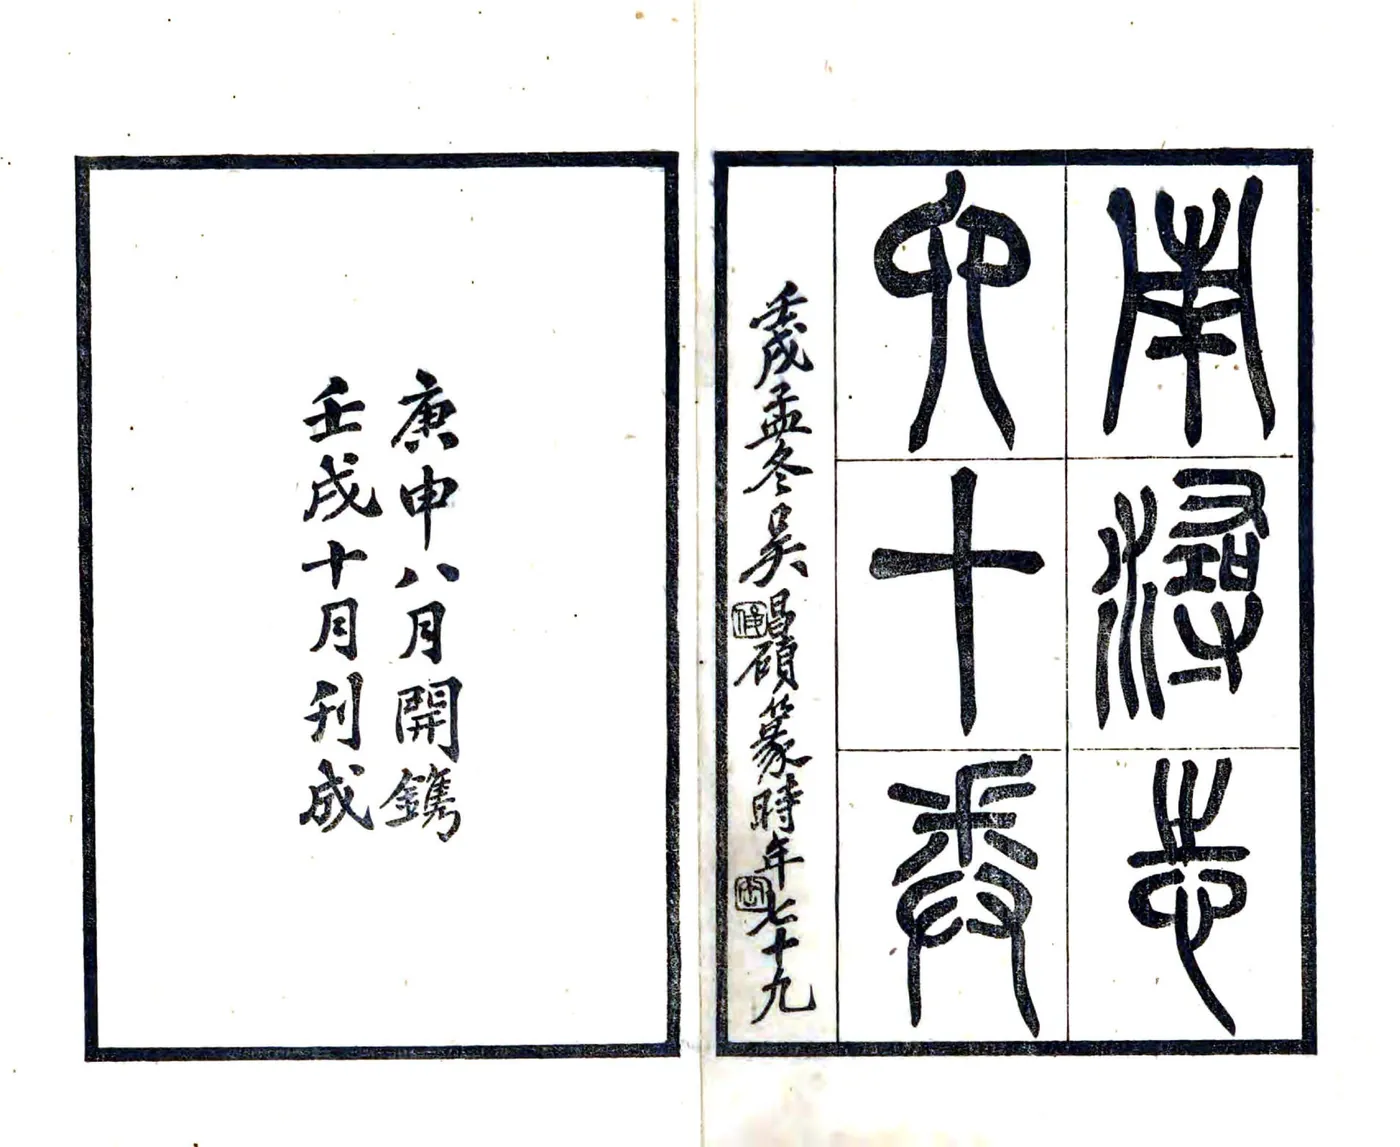 南潯志
六十卷
壬戌孟冬吳昌碩篆時年七十九
庚申八月開鐫
壬戌十月刊成